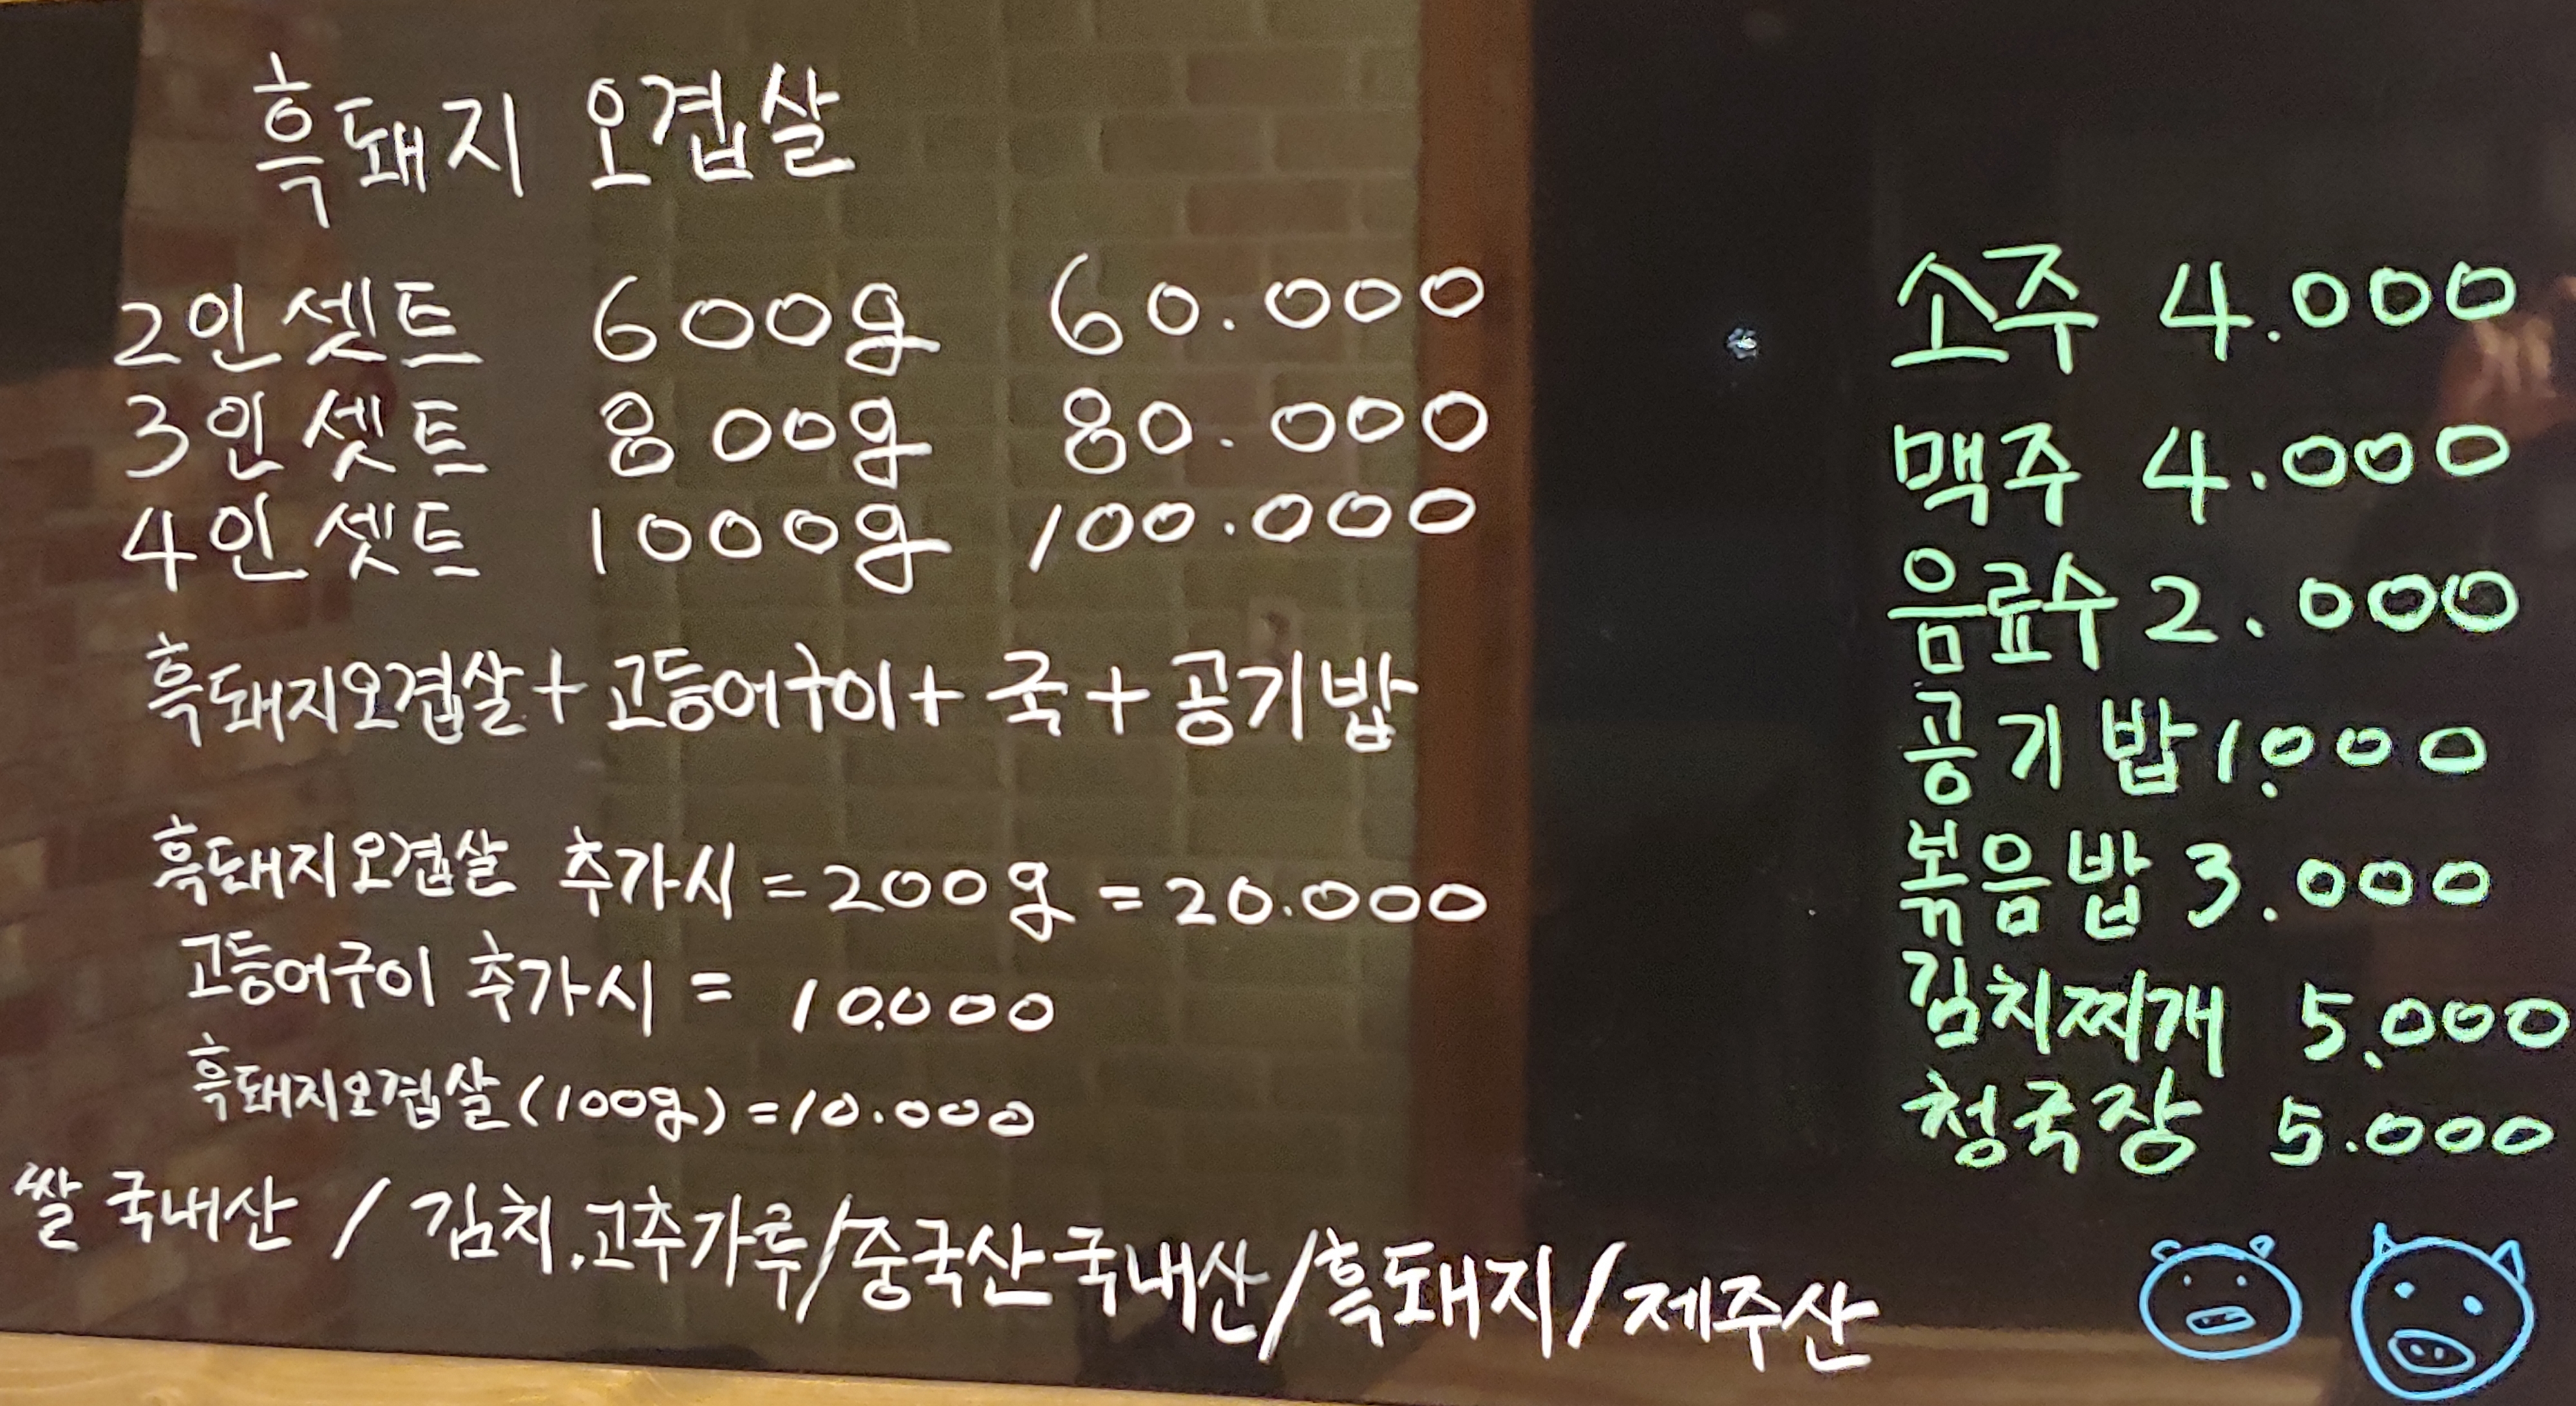 흑돼지 오겹살
2인 셋트 600g 60.000
3인 셋트 800g 80.000
4인 셋트 1000g 100.000
흑돼지오겹살+고등어구이+국+공기밥
흑돼지오겹살 추가시=200g=20.000
고등어구이 추가시= 10.000
흑돼지오겹살(100g)=10.000
쌀 국내산 / 김치.고추가루/중국산 국내산/흑돼지/제주산
소주 4.000
맥주 4.000
음료수 2.000
공기밥 1.000
볶음밥 3.000
김치찌개 5.000
청국장 5.000